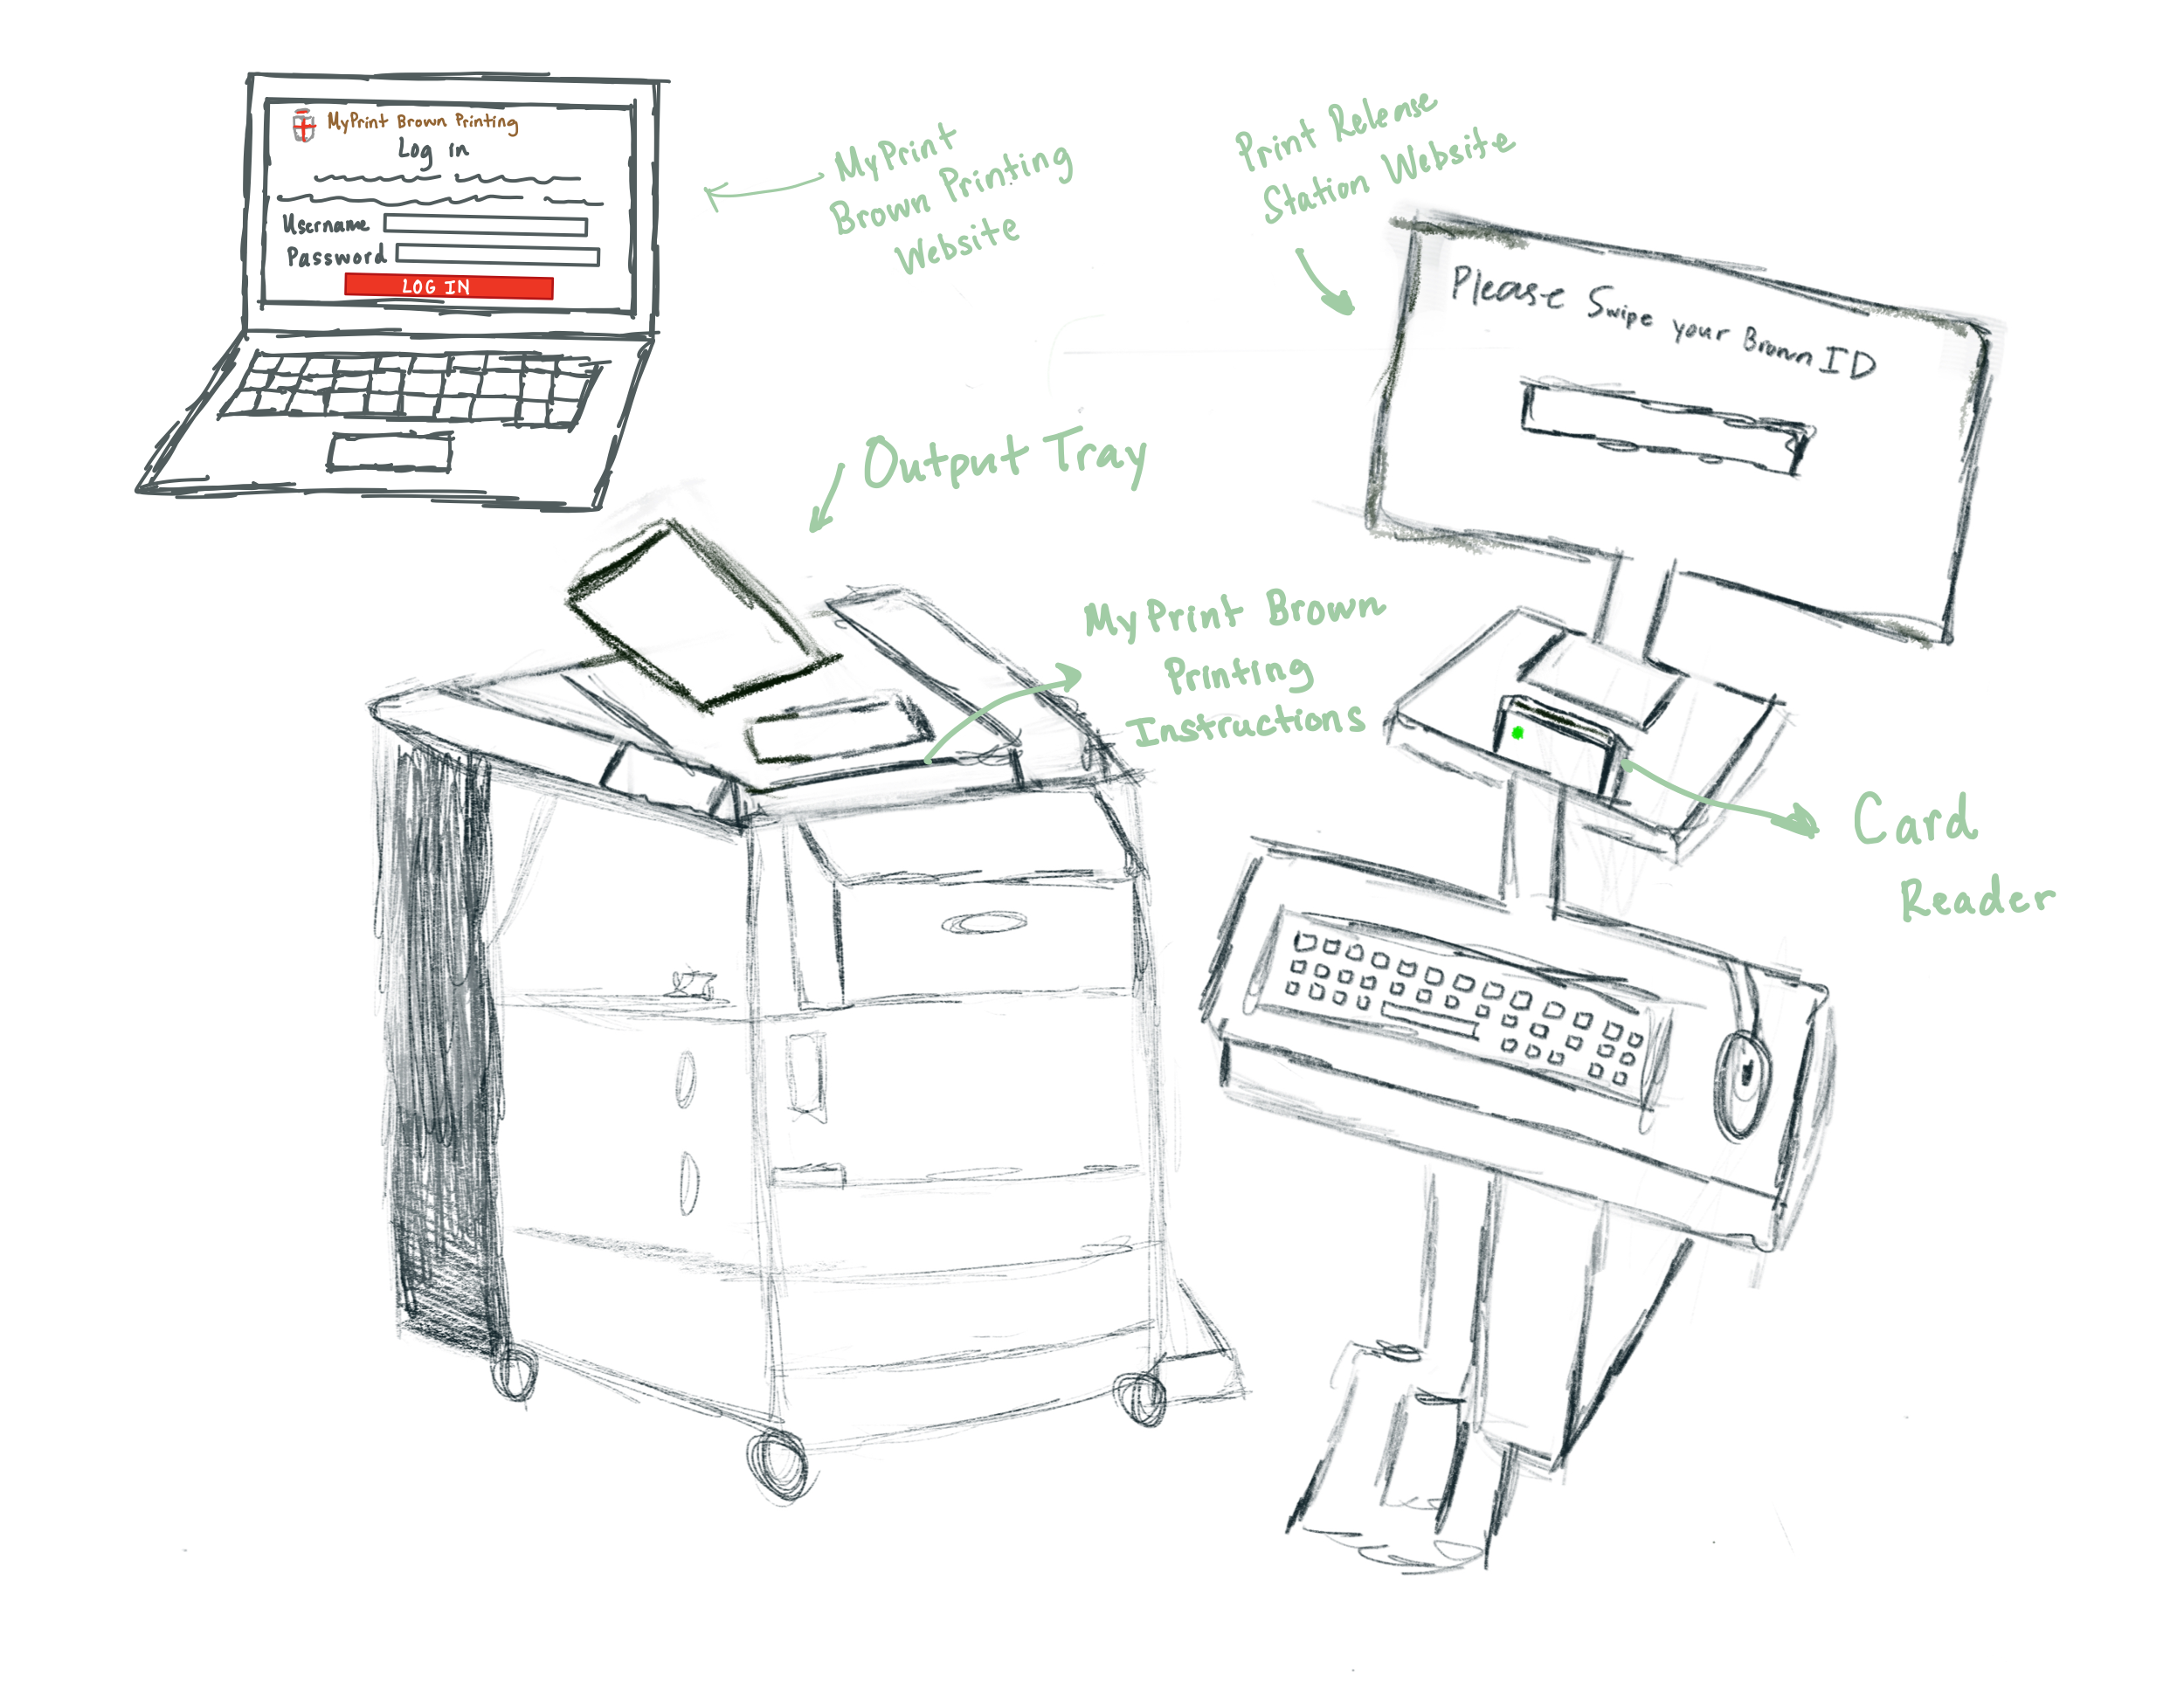 MyPrint Brown Printing
Log in
Username
Password
LOG IN
MyPrint
Brown Printing
Website
Print Release
Station Website
Please Swipe your Brown ID
Output Tray
MyPrint Brown
Printing
Instructions
Card
Reader